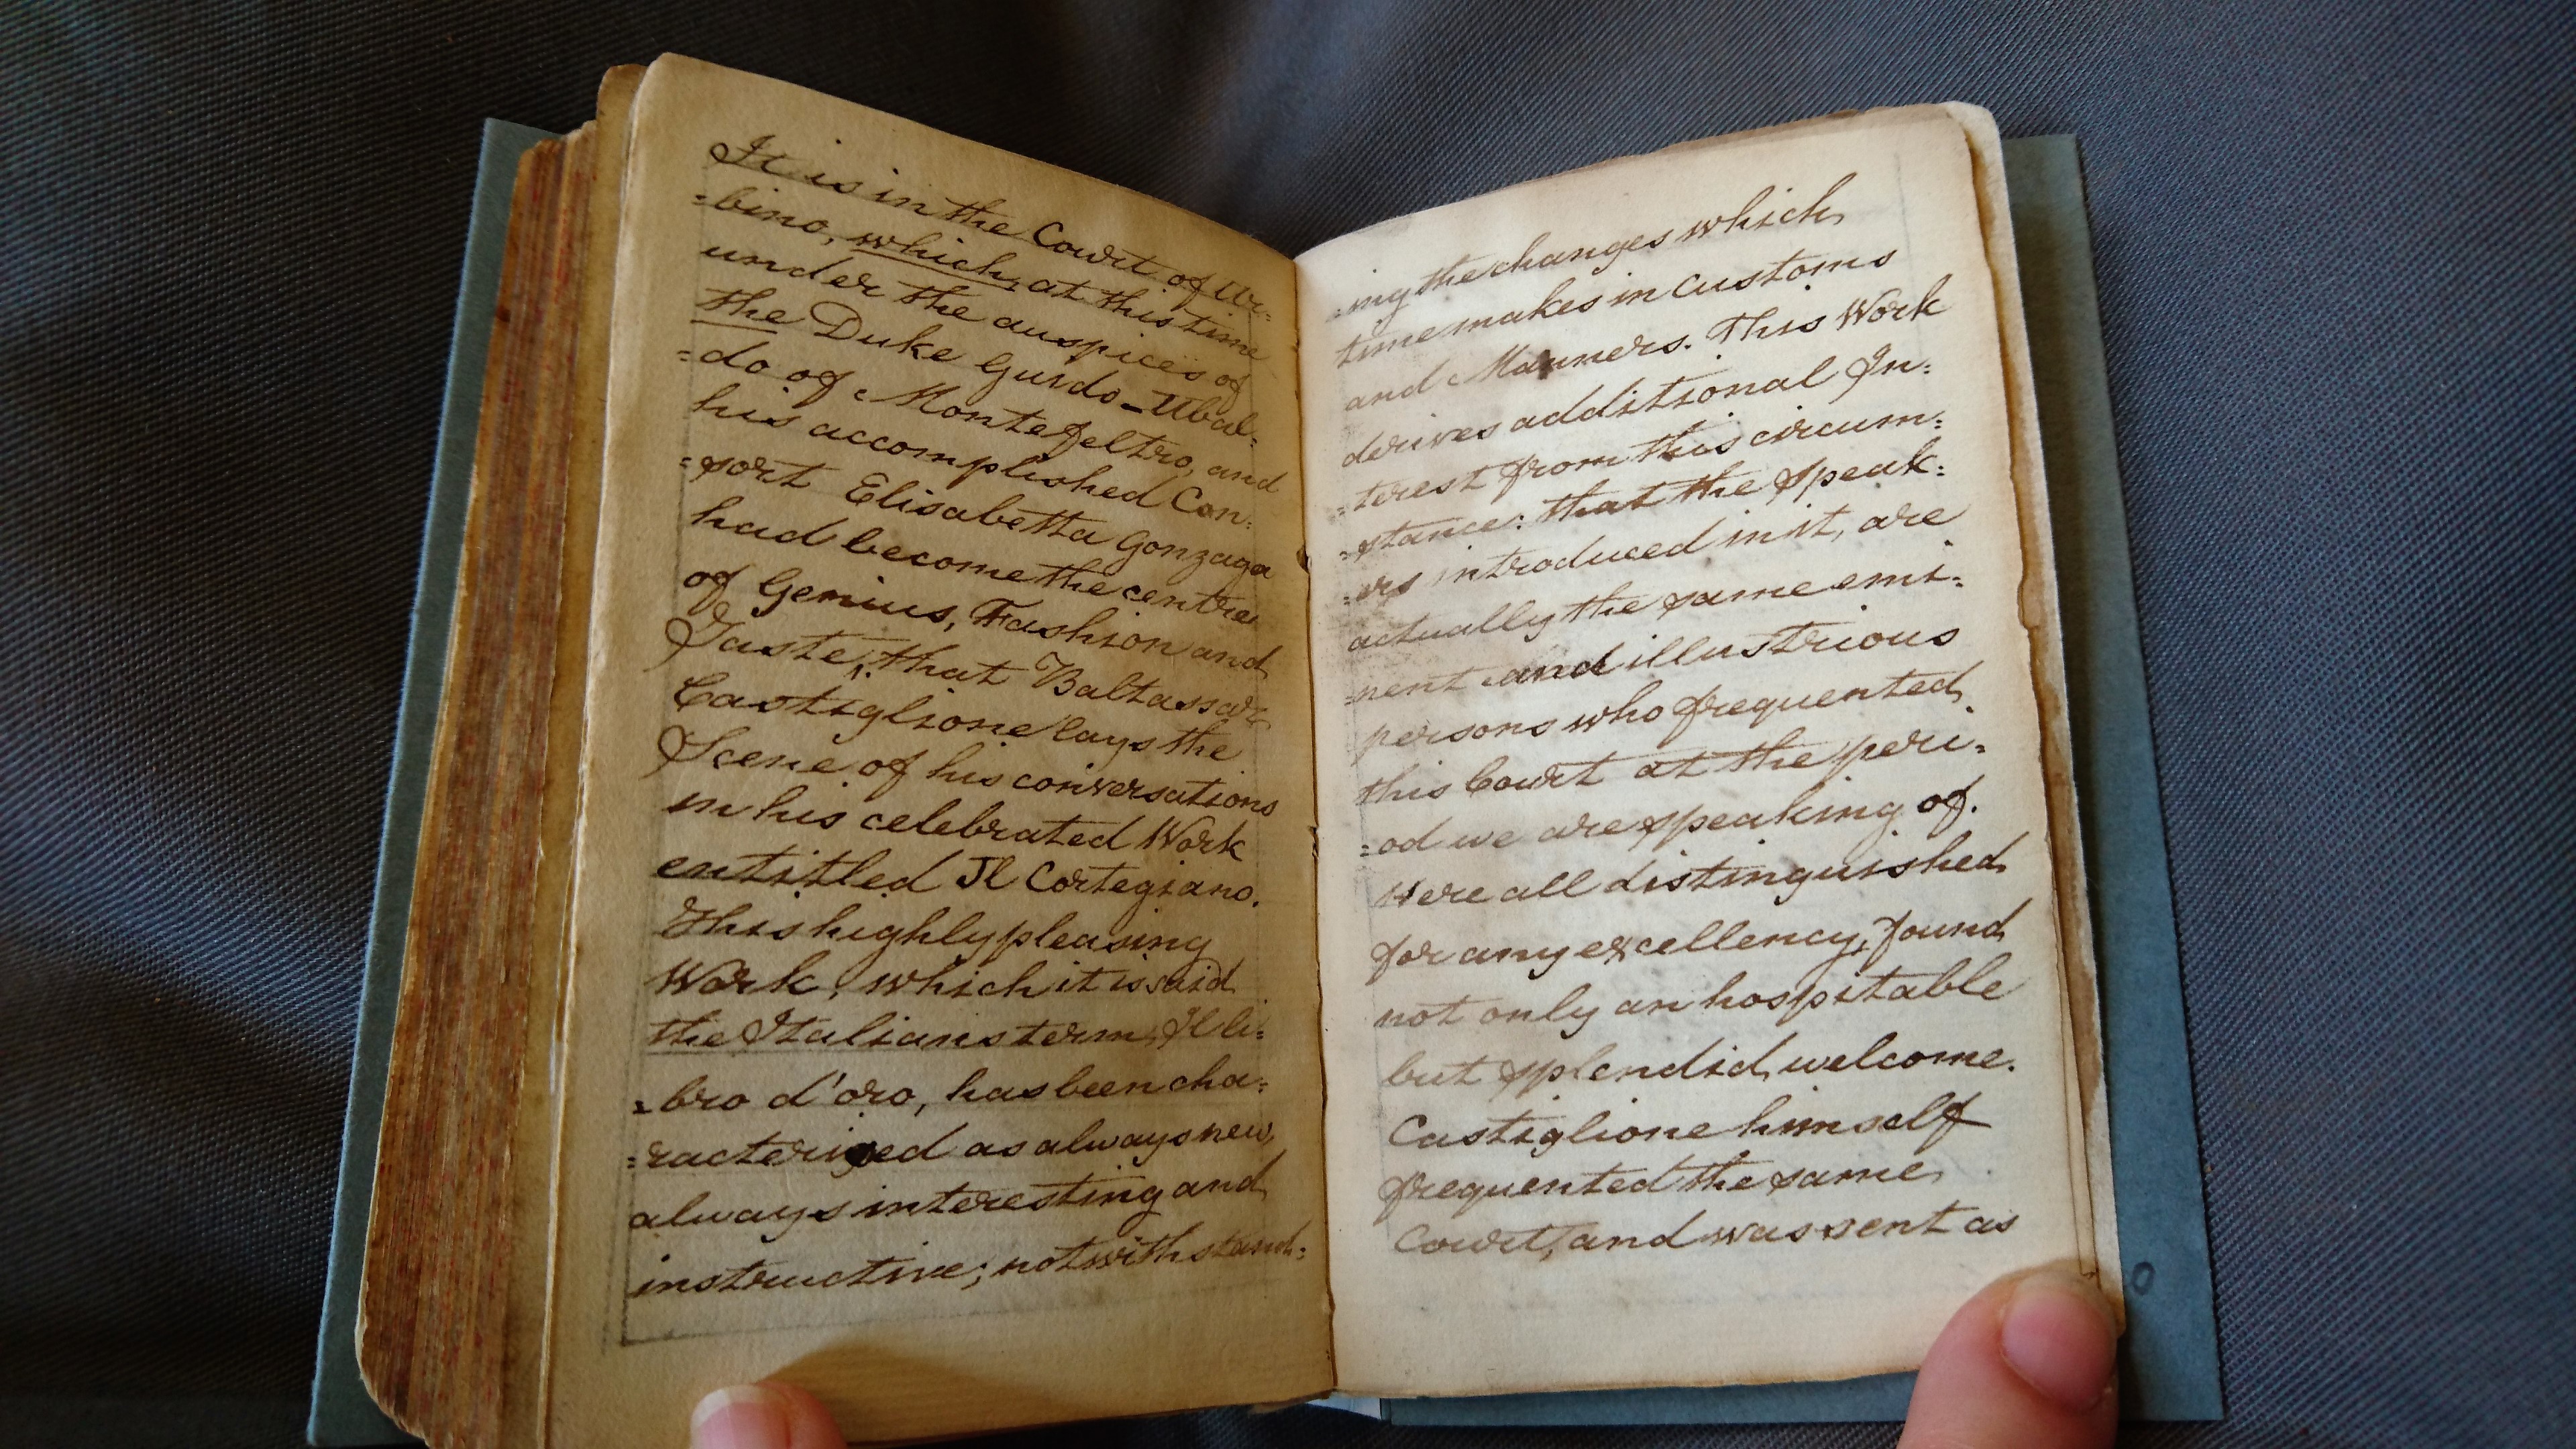 It is in the Court of Ur:
=bino, which, at this time
under the auspices of
the Duke Guido-Ubal:
=do of Montefeltro, and
his accomplished Con:
=sort Elisabetta Gonzaga
had become the centre
of Genius, Fashion and
Taste; that Baltassar
Castiglione lays the
Scene of his conversations
in his celebrated Work
entitled Il Cortegiano.
This highly pleasing
Work, which it is said
the Italians term Il li:
=bro d'oro, has been cha:
=racterized as always new,
always interesting and
instructive; notwithstand:
=ing the changes which
time makes in customs
and Manners. This Work
derives additional In:
=terest from this circum:
=stance: that the speak:
=ers introduced in it, are
actually the same emi:
=nent and illustrious
persons who frequented
this Court at the peri:
=od we are speaking of.
Were all distinguished
for any excellency, found
not only an hospitable
but splendid welcome.
Castiglione himself
frequented the same
Court, and was sent as